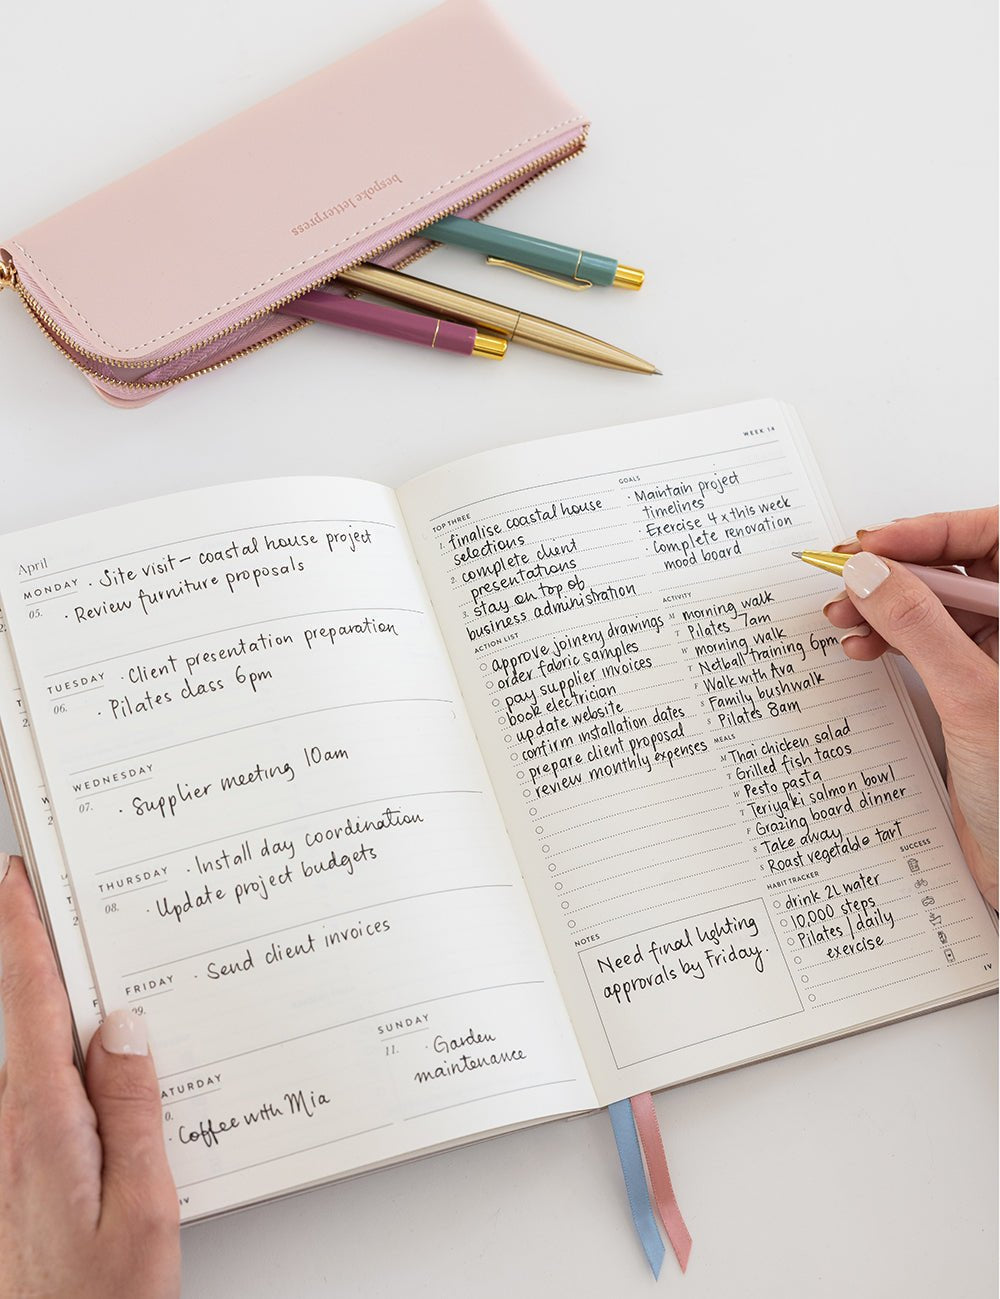 bespoke letterpress
April
MONDAY
05.
· Site visit – coastal house project
· Review furniture proposals
TUESDAY
06.
· Client presentation preparation
· Pilates class 6pm
WEDNESDAY
07.
· Supplier meeting 10am
THURSDAY
08.
· Install day coordination
· Update project budgets
FRIDAY
09.
· Send client invoices
ATURDAY
0.
· Coffee with Mia
SUNDAY
11.
· Garden
maintenance
IV
WEEK 14
TOP THREE
1. finalise coastal house
selections
2. complete client
presentations
3. stay on top of
business administration
GOALS
· Maintain project
timelines
· Exercise 4 x this week
· Complete renovation
mood board
ACTION LIST
approve joinery drawings
order fabric samples
pay supplier invoices
book electrician
update website
confirm installation dates
prepare client proposal
review monthly expenses
ACTIVITY
M morning walk
T Pilates 7am
W morning walk
T Netball training 6pm
F Walk with Ava
S Family bushwalk
S Pilates 8am
MEALS
M Thai chicken salad
T Grilled fish tacos
W Pesto pasta
T Teriyaki salmon bowl
F Grazing board dinner
S Take away
S Roast vegetable tart
HABIT TRACKER
SUCCESS
drink 2L water
10,000 steps
Pilates / daily
exercise
NOTES
Need final lighting
approvals by Friday.
IV